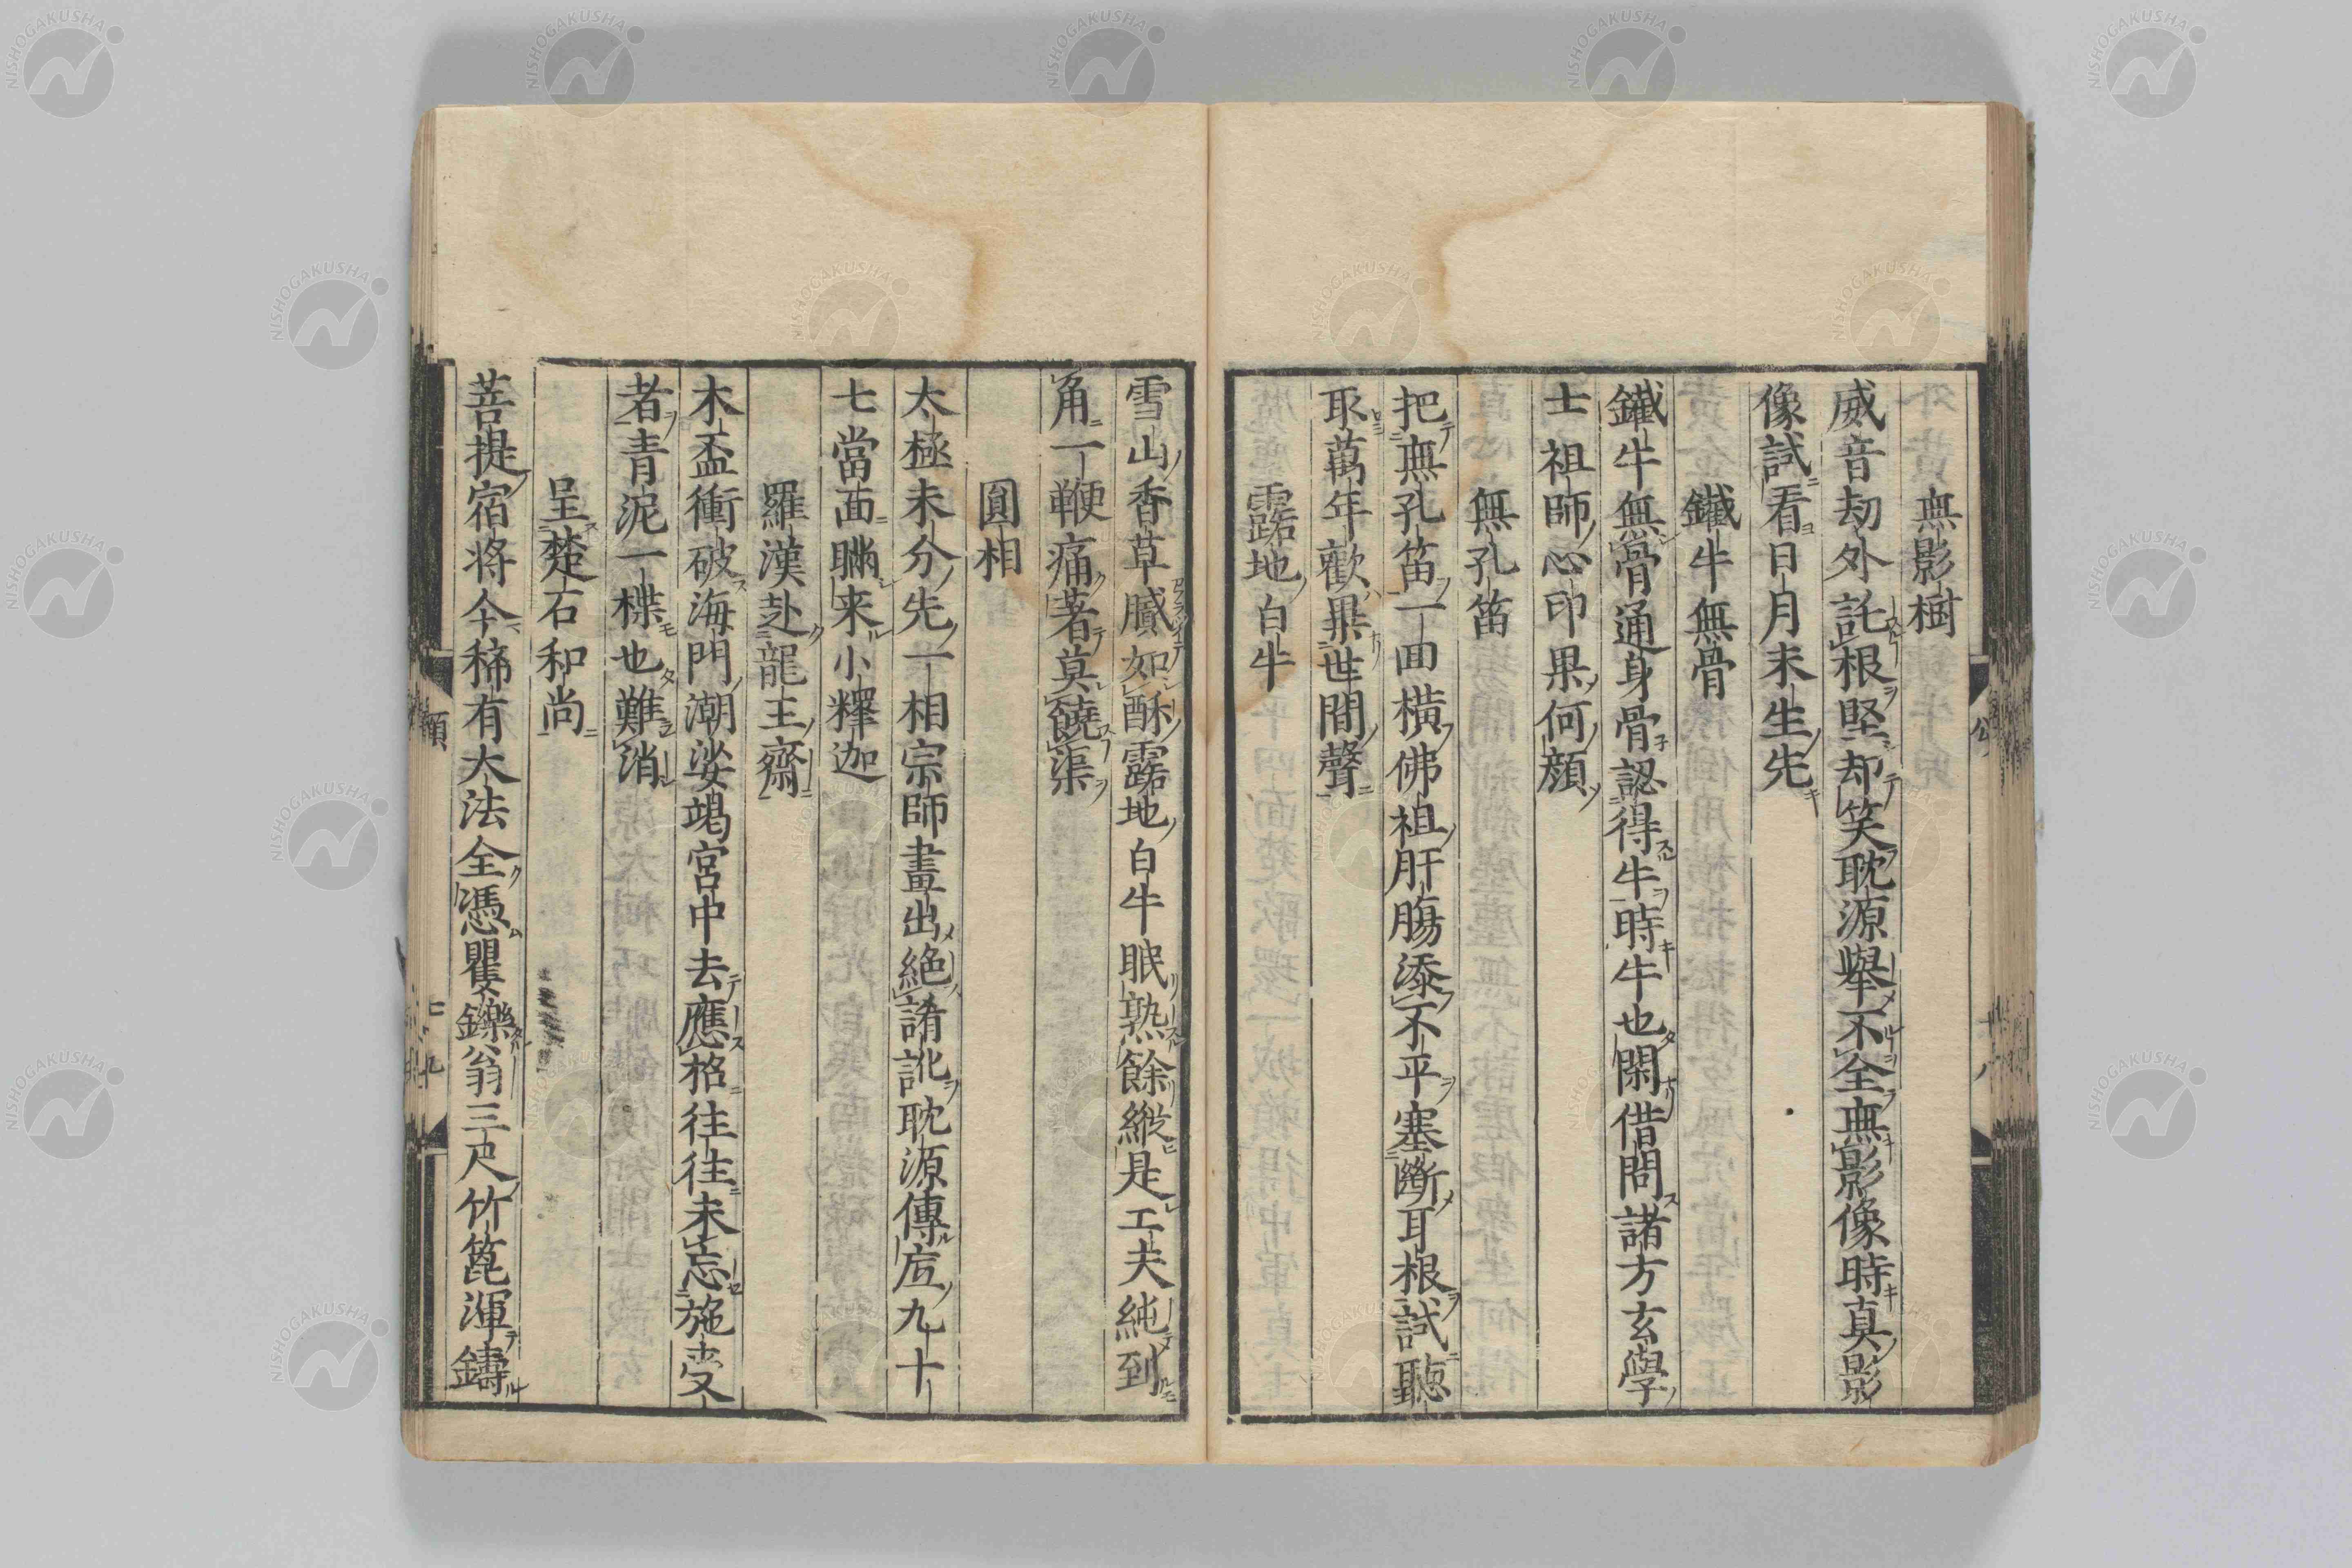 無影樹
威音劫外託根堅却笑耽源舉不全無影像時真影
像試看日月未生先
鐵牛無骨
鐵牛無骨通身骨認得牛時牛也閑借問諸方玄學
士祖師心印果何顔
無孔笛
把無孔笛一面橫佛祖肝膓添不平塞斷耳根試聽
取萬年歡畢世間聲
露地白牛
雪山香草膩如酥露地白牛眠熟餘縱是工夫純到
角一鞭痛著莫饒渠
圓相
太極未分先一相宗師畫出絶誵訛耽源傳底九十
七當面瞞来小釋迦
羅漢赴龍王齋
木盃衝破海門潮娑竭宮中去應格往往未忘施受
者青泥一楪也難消
呈楚石和尚
菩提宿将今稀有大法全憑矍鑠翁三尺竹篦渾鑄
NISHOGAKUSHA